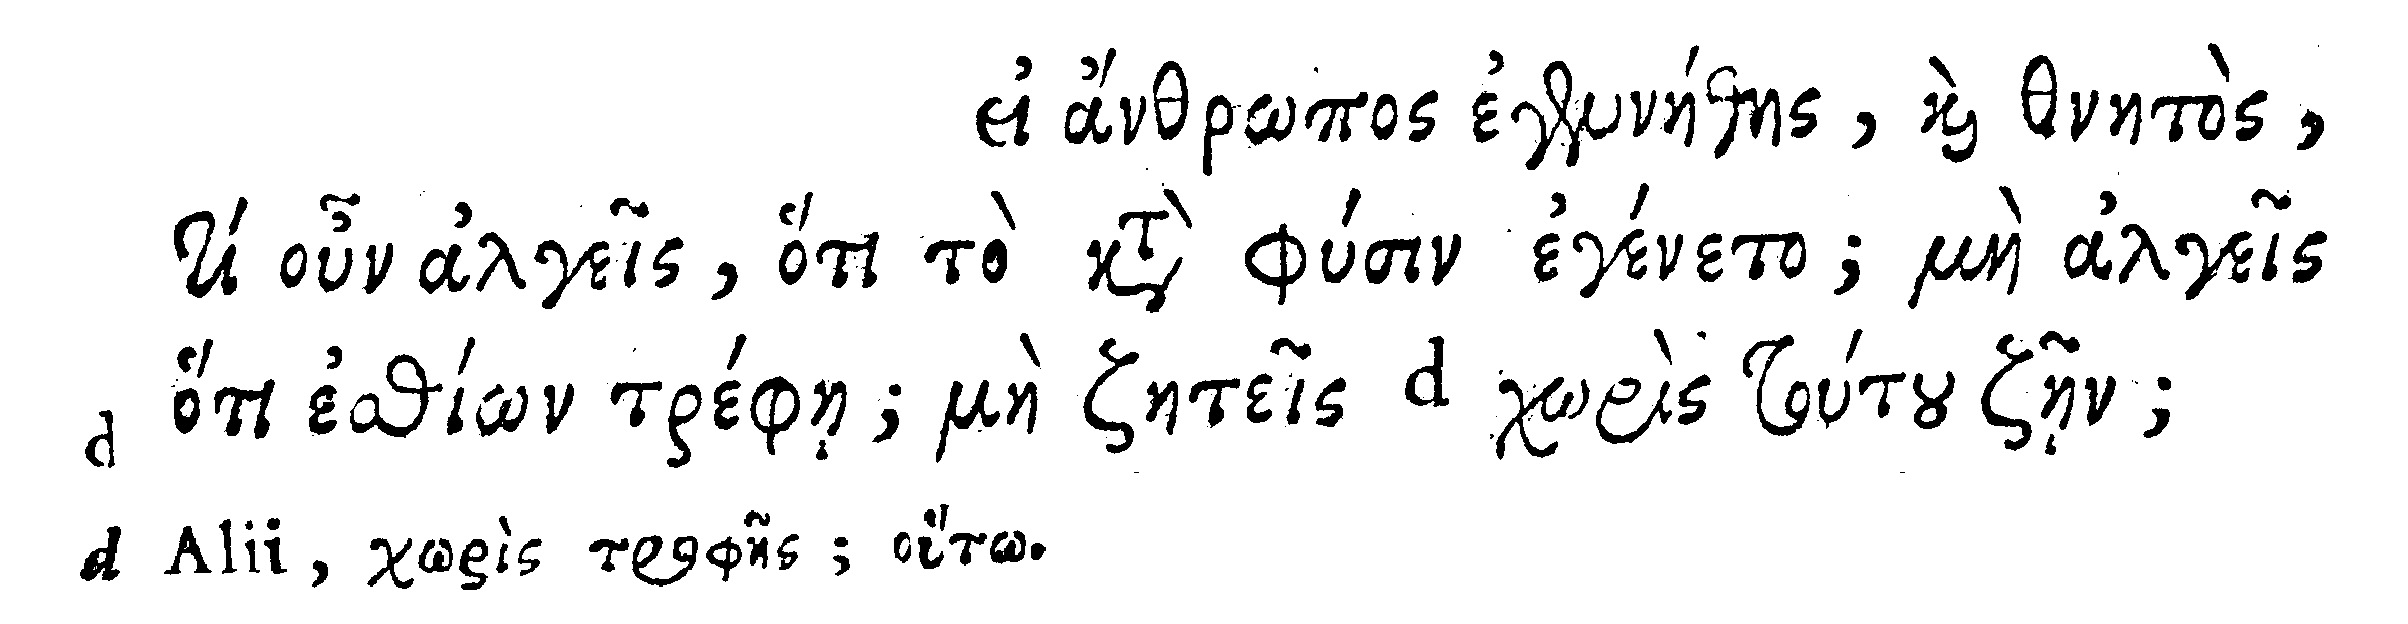 εἰ ἄνθρωπος ἐγεννήθης, καὶ θνητὸς,
τί οὖν ἀλγεῖς, ὅτι τὸ κατὰ φύσιν ἐγένετο; μὴ ἀλγεῖς
ὅτι ἐσθίων τρέφῃ; μὴ ζητεῖς d χωρὶς τούτου ζῇν;
d
d Alii, χωρὶς τροφῆς; οὕτω.